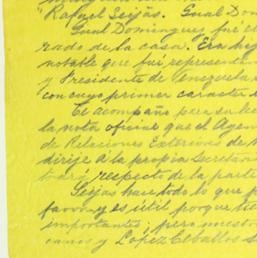 "Rafael Seijas. Gual Dom
Gual Dominguez fué e
rado de la casa. Era h
notable que fué representan
y Presidente de Venezuela
con cuyo primer caracter
Te acompaño para su le
la nota oficial que el Agen
de Relaciones Exteriores de
dirije a la propia Secretar
respecto de la parte
Seijas hace todo lo que p
favor y es útil porque tie
importantes; pero nuestro
canos y López Ceballos s